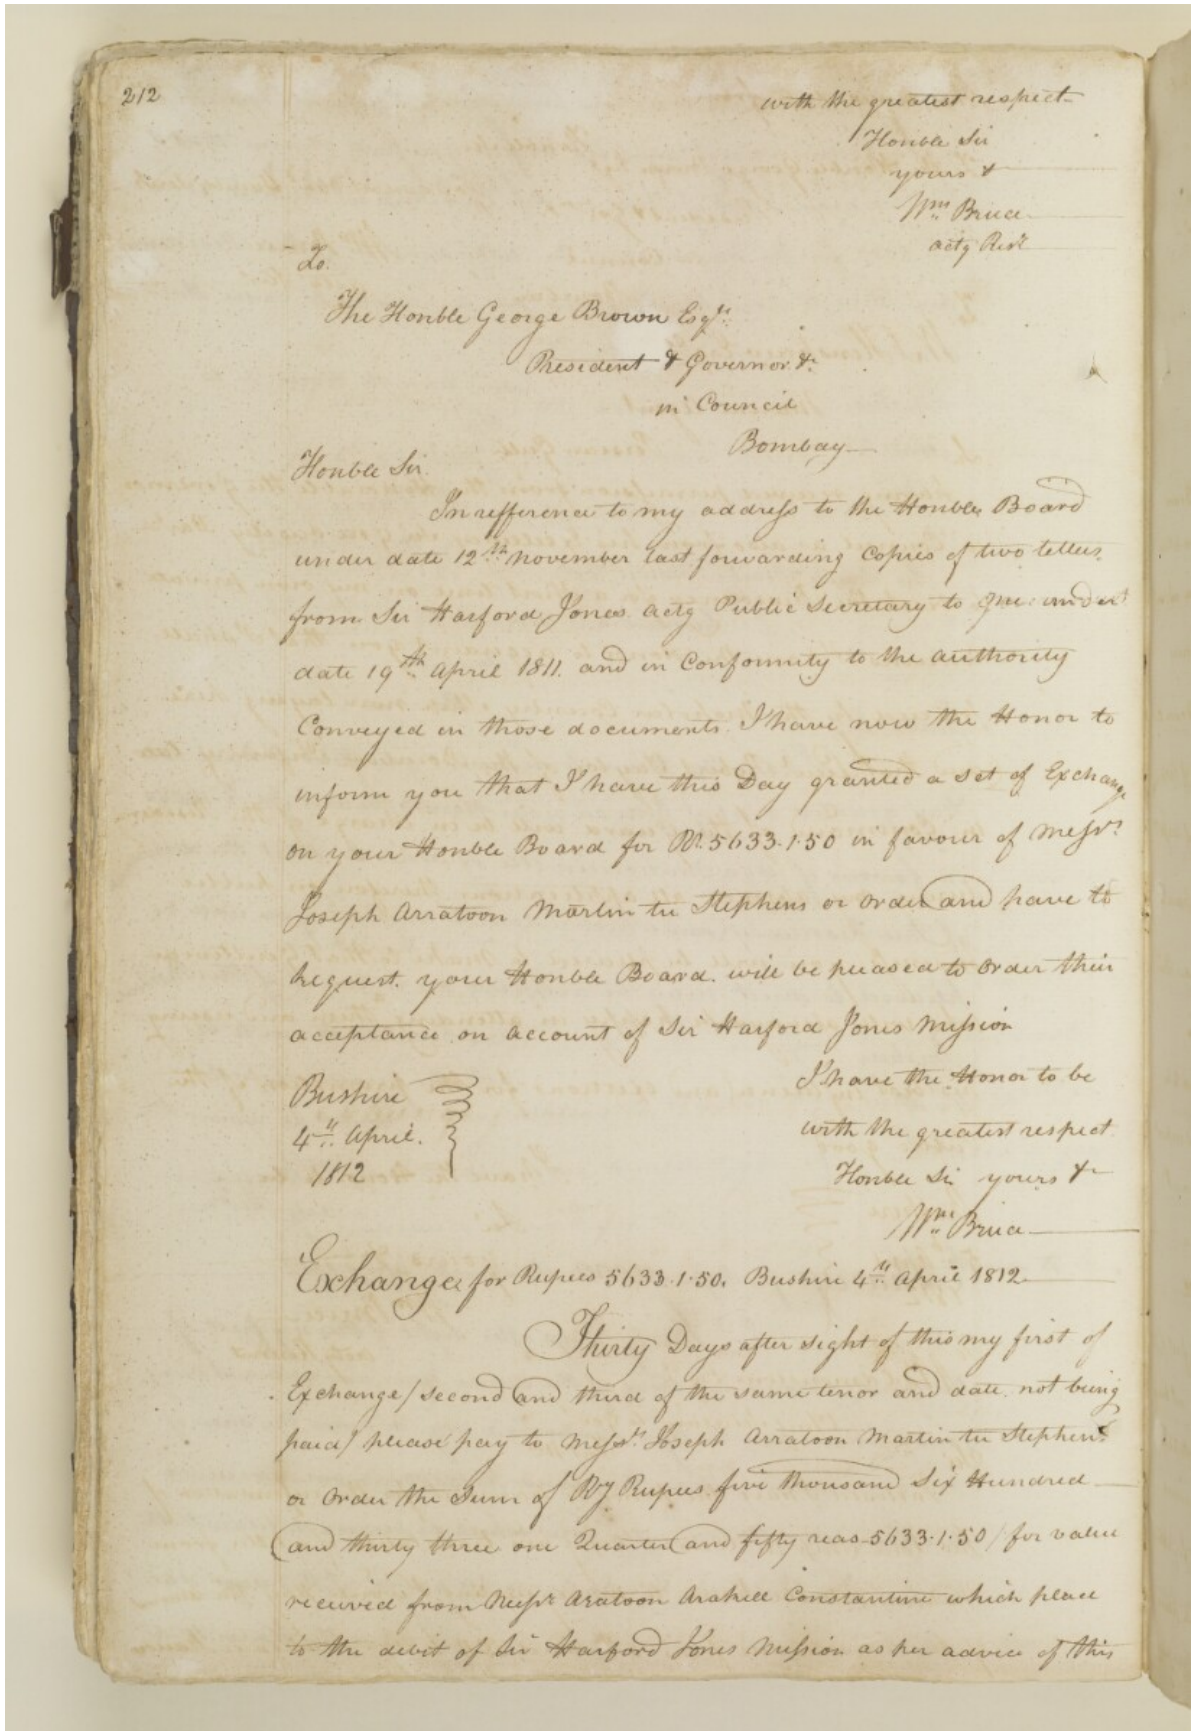 212
with the greatest respect
Honble Sir
yours &
Wm Bruce
actg Rest
To.
The Honble George Brown Esqr.
President & Governor &c
in Council
Bombay
Honble Sir.
In refference to my address to the Honble Board
under date 12th November last forwarding Copies of two letters
from Sir Harford Jones actg Public Secretary to me under
date 19th April 1811. and in Conformity to the authority
Conveyed in those documents I have now the Honor to
inform you that I have this Day granted a set of Exchange
on your Honble Board for Rs. 5633.1.50 in favour of Messrs
Joseph Arratoon Martin ter Stephens or order and have to
request. your Honble Board. will be pleased to order their
acceptance on account of Sir Harford Jones Mission
I have the Honor to be
Bushire
with the greatest respect
4th April.
Honble Sir yours &
1812
Wm Bruce
Exchange for Rupees 5633.1.50. Bushire 4th April 1812
Thirty Days after sight of this my first of
Exchange / second and third of the same tenor and date. not being
paid / please pay to Messrs. Joseph Arratoon Martin ter Stephens
or Order the Sum of By Rupees five thousand Six Hundred
and thirty three one Quarter and fifty reas 5633.1.50 / for value
received from Messrs Aratoon Arakell Constantine which place
to the debit of Sir Harford Jones Mission as per advice of this